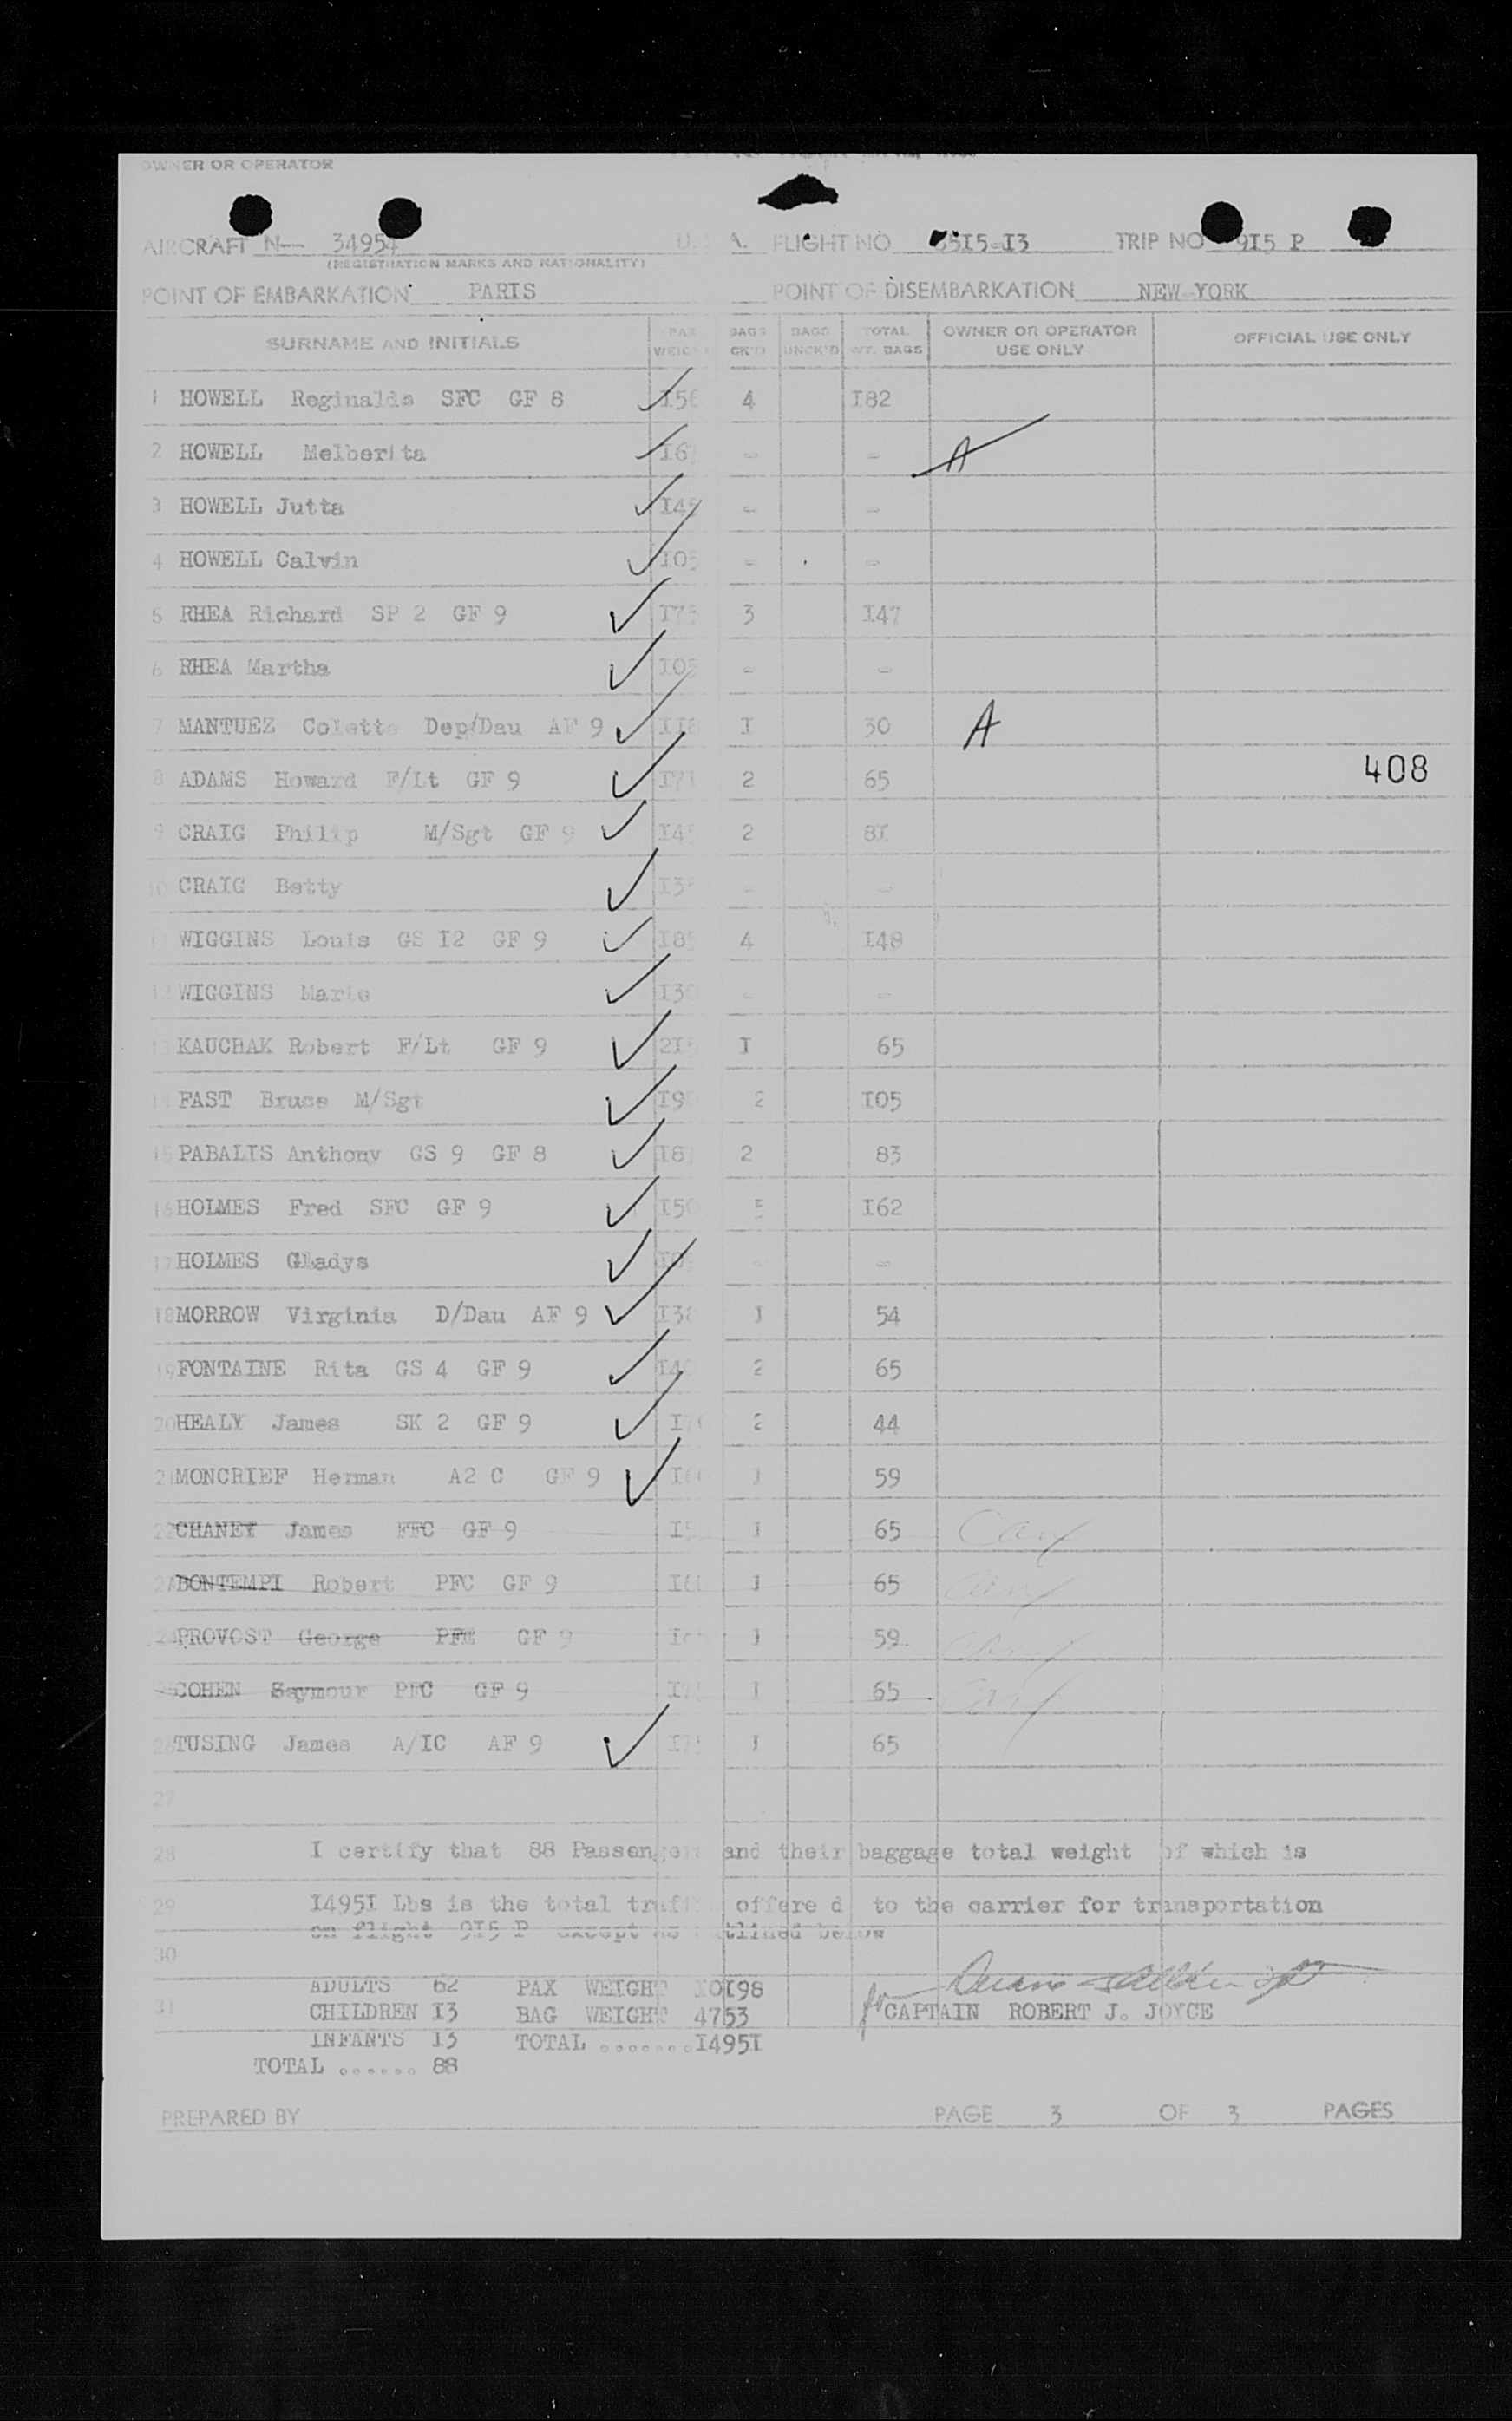 OWNER OR OPERATOR
AIRCRAFT N— 34954 U. A. FLIGHT NO 515-I3 TRIP NO 9I5 P
(REGISTRATION MARKS AND NATIONALITY)
POINT OF EMBARKATION PARIS POINT OF DISEMBARKATION NEW YORK
SURNAME AND INITIALS PAX WEIGHT BAGS CK'D BAGS UNCK'D TOTAL WT. BAGS OWNER OR OPERATOR USE ONLY OFFICIAL USE ONLY
1 HOWELL Reginalds SFC GF 8 4 I82
2 HOWELL Melberita - - A
3 HOWELL Jutta - -
4 HOWELL Calvin I05 - -
5 RHEA Richard SP 2 GF 9 3 I47
6 RHEA Martha - -
7 MANTUEZ Colette Dep/Dau AF 9 I 30 A
8 ADAMS Howard F/Lt GF 9 2 65
408
9 CRAIG Philip M/Sgt GF 9 2 8I
10 CRAIG Betty - -
WIGGINS Louis GS I2 GF 9 4 I48
WIGGINS Marie - -
13 KAUCHAK Robert F/Lt GF 9 I 65
FAST Bruce M/Sgt 2 I05
15 PABALIS Anthony GS 9 GF 8 2 83
16 HOLMES Fred SFC GF 9 5 I62
17 HOLMES Gladys - -
18 MORROW Virginia D/Dau AF 9 I 54
19 FONTAINE Rita GS 4 GF 9 2 65
20 HEALY James SK 2 GF 9 2 44
21 MONCRIEF Herman A2 C GF 9 I 59
22 CHANEY James PFC GF 9 I 65
BONTEMPI Robert PFC GF 9 I 65
24 PROVOST George GF 9 I 59
COHEN Seymour PFC GF 9 I 65
26 TUSING James A/IC AF 9 I 65
27
28 I certify that 88 Passengers and their baggage total weight of which is
29 I495I Lbs is the total traffic offere d to the carrier for transportation
on flight 9I5 P except as outlined below
30
ADULTS 62 PAX WEIGHT I0I98
31 CHILDREN I3 BAG WEIGHT 4753 for CAPTAIN ROBERT J. JOYCE
INFANTS I3 TOTAL .......I495I
TOTAL ...... 88
PREPARED BY PAGE 3 OF 3 PAGES